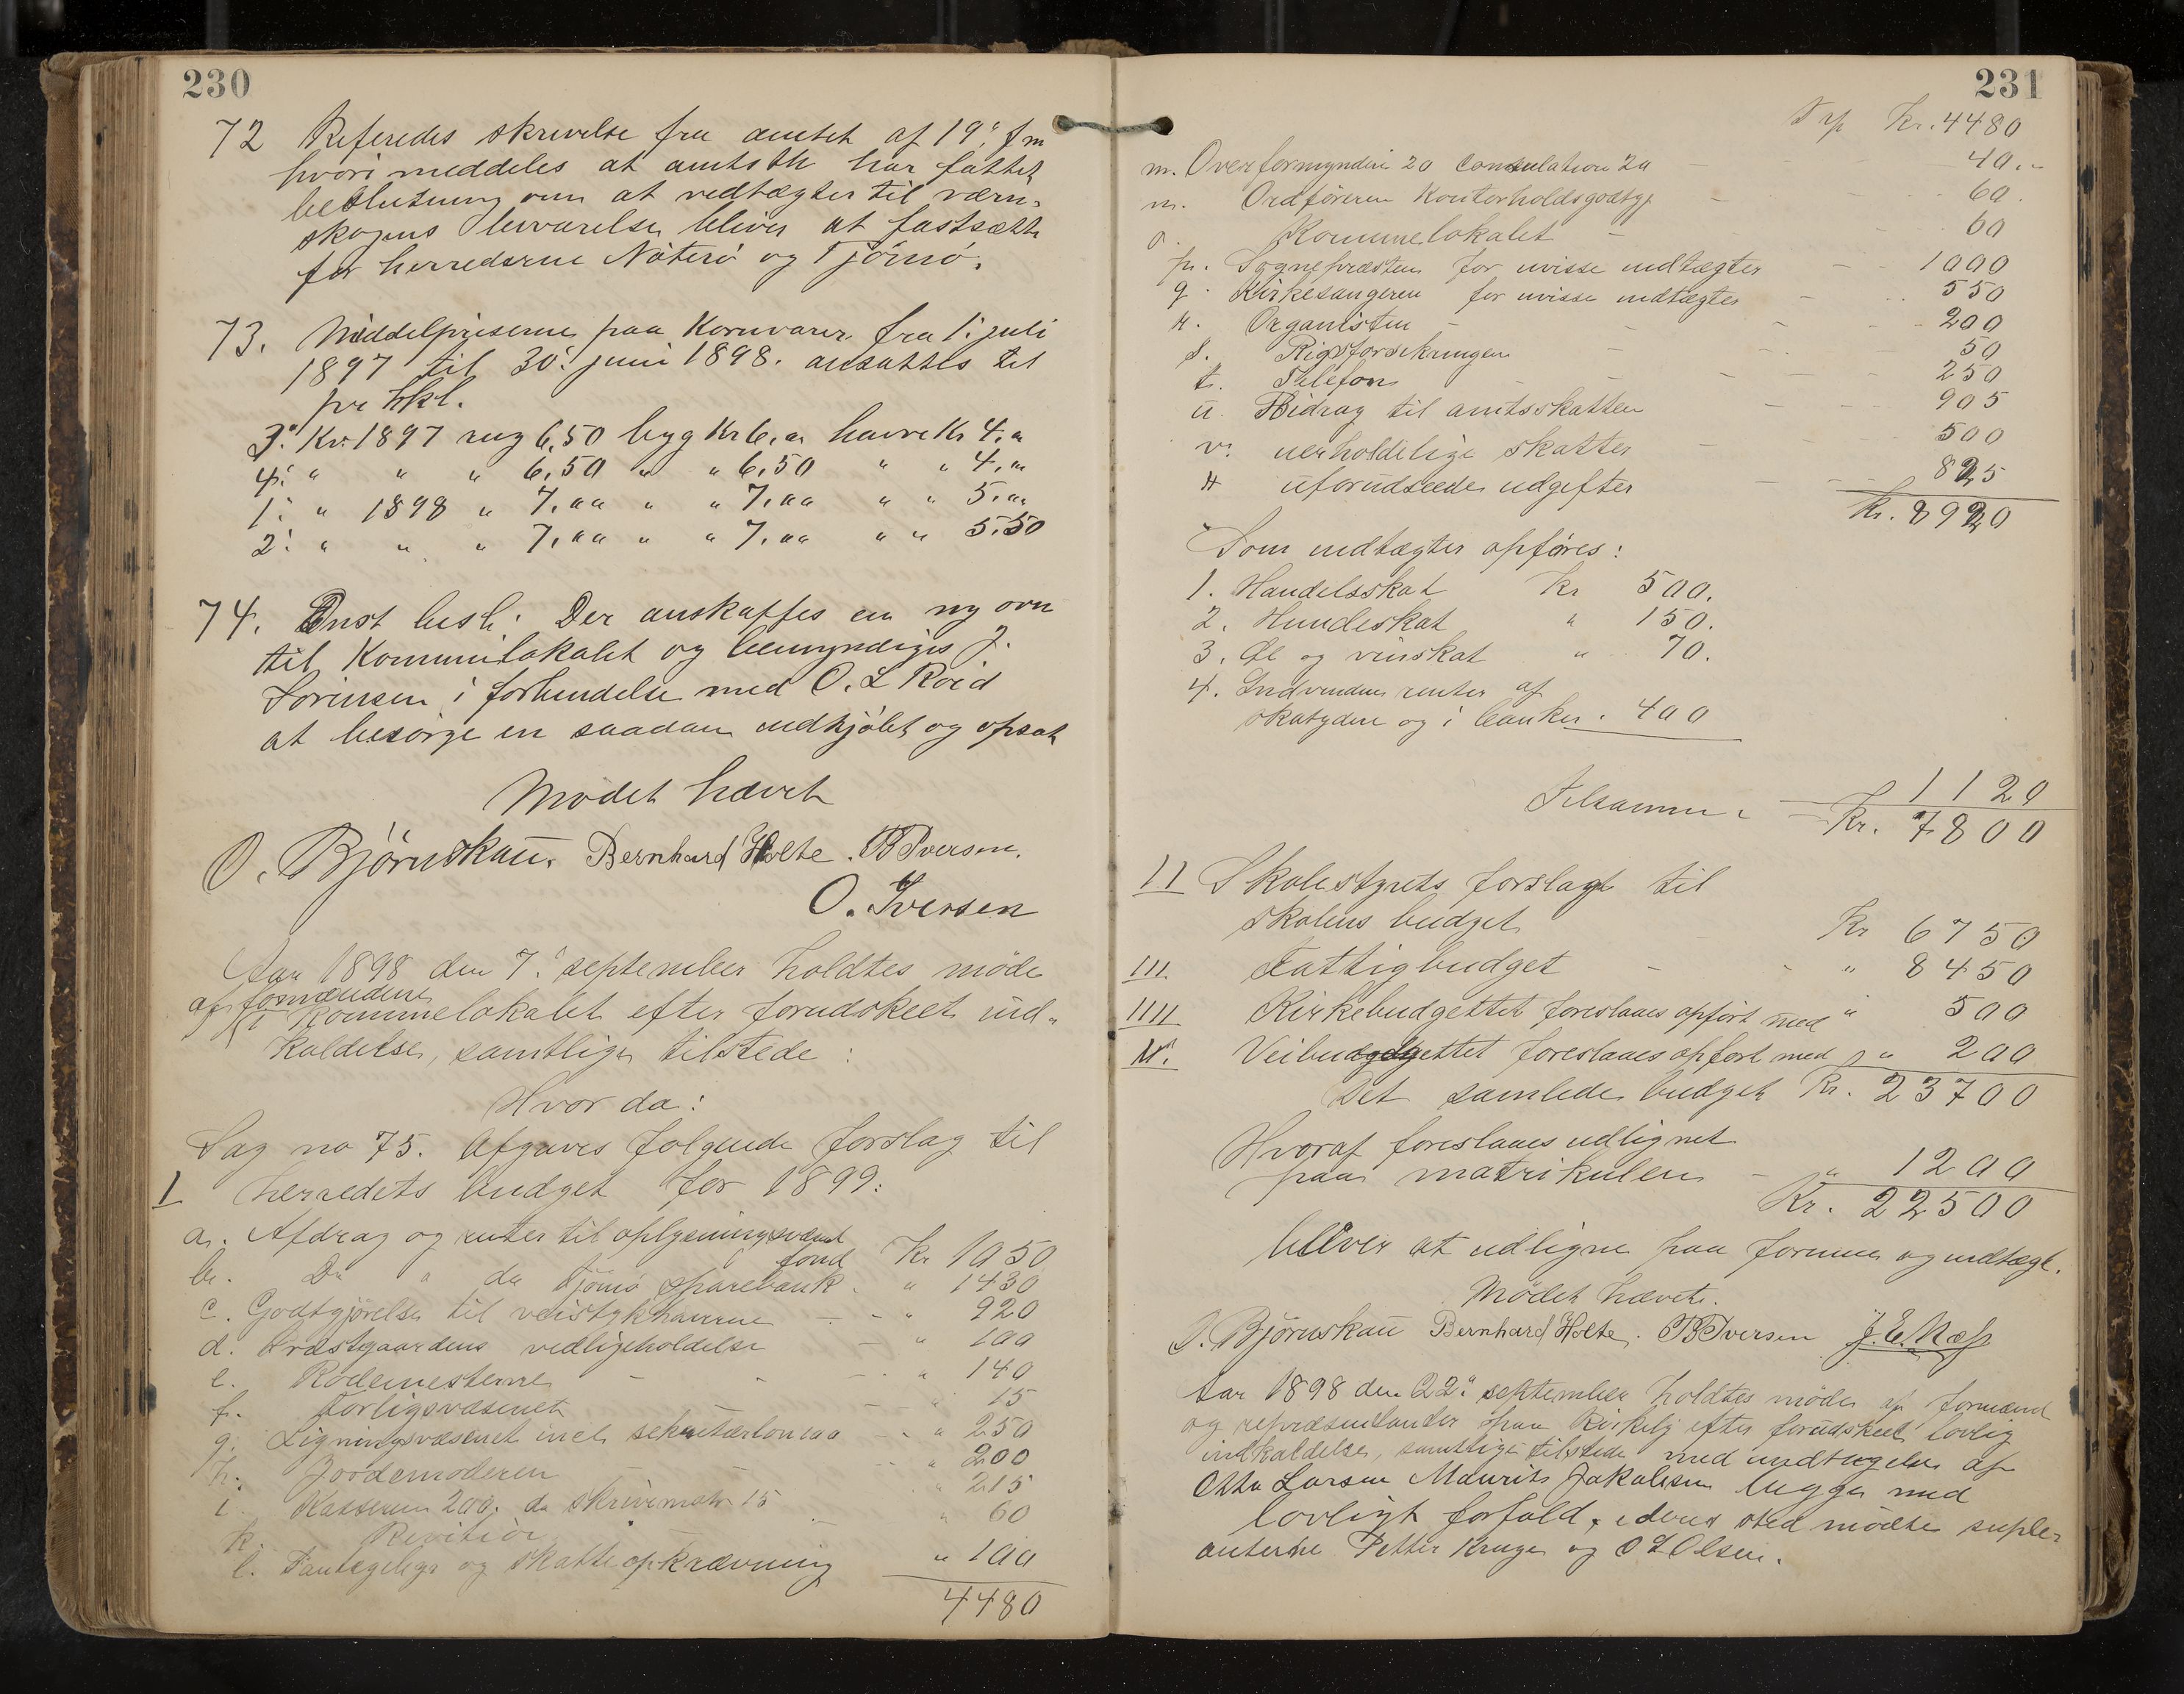 230
72 Referedes skrivelse fra amtet af 19' f m
hvori meddeles at amtsth har fattet
beslutning om at vedtægter til værn-
skogens bevarelse bliver at fastsætte
for herrederne Nøterø og Tjømø.
73. Middelpriserne paa Kornvarer fra 1. juli
1897 til 30. juni 1898. ansattes til
pr hkl.
3. Kv. 1897 rug 6,50 byg Kr 6,00 havre Kr 4,00
4. " " " 6,50 " " 6,50 " " 4,00
1. " 1898 " 7,00 " " 7,00 " " 5,00
2. " " " 7,00 " " 7,00 " " 5.50
74. Enst besl: Der anskaffes en ny ovn
til Kommunelokalet og bemyndiges J.
Sørensen i forbindelse med O. L Røed
at besørge en saadan indkjøbt og opsat
Mødet hævet
O. Bjørnskau. Bernhard Holte. B Iversen.
O. Iversen
Aar 1898 den 7. september holdtes møde
af formændene
i Kommunelokalet efter forudskeet ind-
kaldelse, samtlige tilstede:
Hvor da:
Sag no 75. Afgaves følgende forslag til
I herredets budget for 1899:
a. Afdrag og renter til oplysningsvæsnet
fond Kr 1050
b. Do " do Tjømø sparebank - " 1430
c. Godtgjørelse til veistykkhaverne - - " 920
d. Præstgaardens vedligeholdelse - " 100
e. Rodemesterne - - - " 140
f. Forligsvæsenet - " 15
g. Ligningsvæsenet incl. sekretærløn 100 - " 250
h. Jordemoderen - - " 200
i. Kasseren 200. do skrivematr 15 " 215
k. Revisiør - " 60
l. Pantegelige og skatteopkrævning " 100
4480
231
Trp Kr. 4480
m. Overformynderi 20 Consulation 20 - 40.-
n. Ordføreren Kontorholdsgodtgj - 60.
o. Kommunelokalet - 60
p. Sognepræsten for uvisse indtægter - 1000
q. Kirkesangeren for uvisse indtægter - 550
r. Organisten - 200
s. Rigsforsikringen - 50
t. Telefon - 250
u. Bidrag til amtsskatten - 905
v. uerholdelige skatter - 500
x uforudseede udgifter - 825
Kr. 8920
Som indtægter opføres:
1. Handelsskat Kr 500.
2. Hundeskat " 150.
3. Øl og vinskat " 70.
4. Indvundne renter af
skatydere og i banker. 400
Tilsammen - 1120
Kr. 7800
II Skolestyrets forslag til
skolens budget - Kr 6750
III Fattigbudget - - " 8450
IIII Kirkebudgettet foreslaaes opført med " 500
V. Veibudgettet foreslaaes opført med " 200
Det samlede budget Kr. 23700
Hvoraf foreslaaes udlignet
paa matrikulen - " 1200
Kr. 22500
bliver at udligne paa formue og indtægt.
Mødet hævet.
O. Bjørnskau Bernhard Holte. B Iversen J. E. Næss
Aar 1898 den 22. september holdtes møde af formænd
og repræsentanter paa Kirkely efter forudskeet lovlig
indkaldelse, samtlige tilstede med undtagelse af
Otto Larsen Maurits Jakobsen begge med
lovligt forfald, i deres sted mødte suple-
anterne Petter Kruge og O L Olsen.